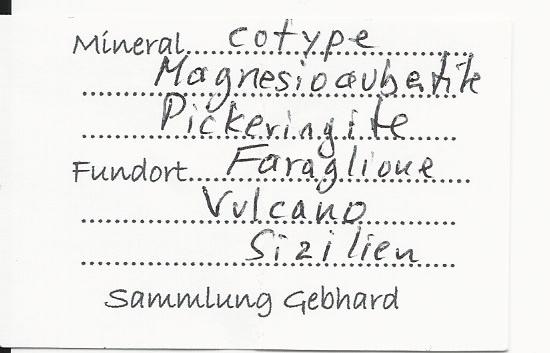 Mineral cotype
Magnesioaubertite
Pickeringite
Fundort Faraglione
Vulcano
Sizilien
Sammlung Gebhard